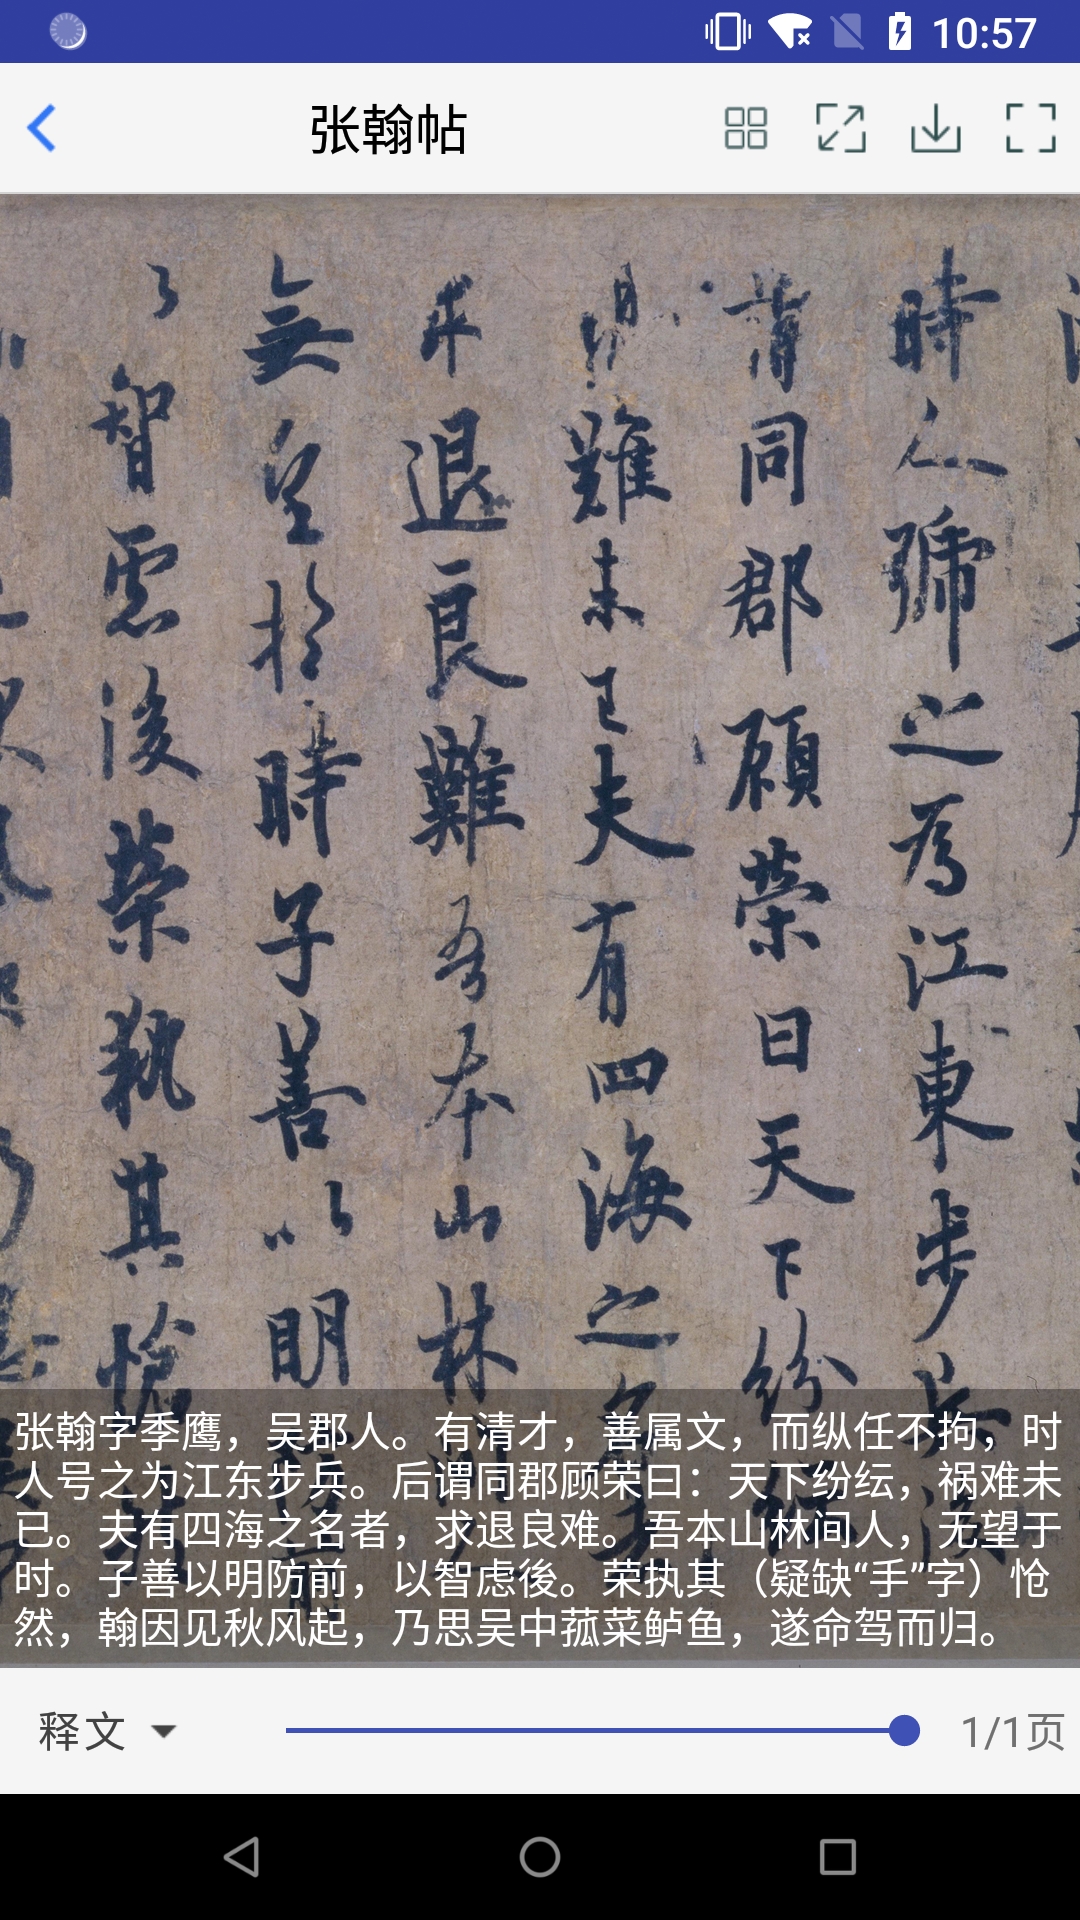 10:57
张翰帖
時人號之為江東步兵後
謂同郡顧榮曰天下紛
禍難未已夫有四海之名
求退良難吾本山林間
無望於時子善以明防前
以智慮後榮執其愴
张翰字季鹰，吴郡人。有清才，善属文，而纵任不拘，时
人号之为江东步兵。后谓同郡顾荣曰：天下纷纭，祸难未
已。夫有四海之名者，求退良难。吾本山林间人，无望于
时。子善以明防前，以智虑後。荣执其（疑缺“手”字）怆
然，翰因见秋风起，乃思吴中菰菜鲈鱼，遂命驾而归。
释文
1/1页